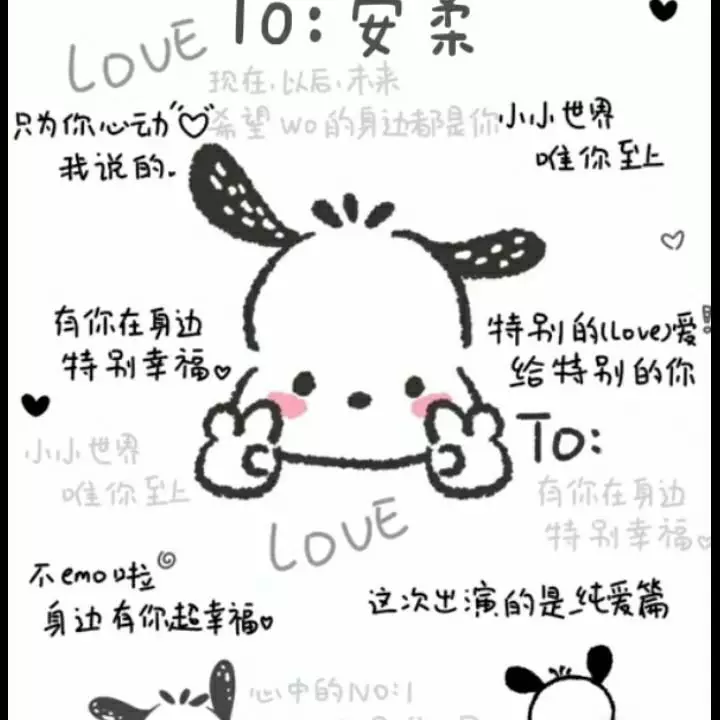 To: 安柔
LOVE
现在.以后.未来
希望 wo 的身边都是你
只为你心动
我说的.
小小世界
唯你至上
有你在身边
特别幸福
特别的(Love)爱
给特别的你
To:
小小世界
唯你至上
有你在身边
特别幸福
LOVE
不emo啦
身边有你超幸福
这次出演的是纯爱篇
心中的NO:1